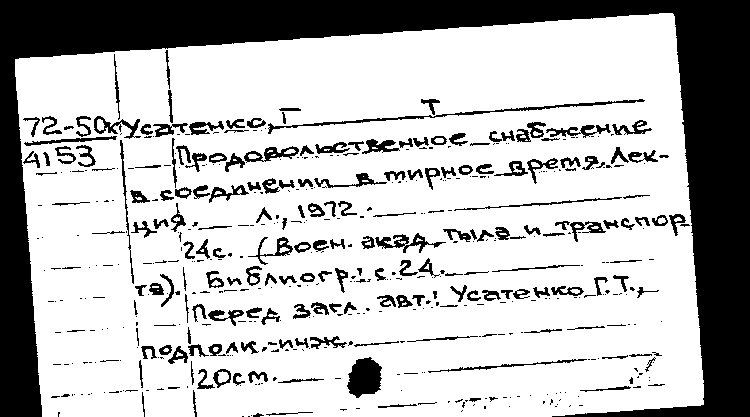 72-50к Усатенко, Г Т
4153 Продовольственное снабжение
в соединении в мирное время. Лек-
ция. Л., 1972.
24с. (Воен. акад. тыла и транспор-
та). Библиогр.: с.24.
Перед загл. авт.: Усатенко Г.Т.,
подполк.-инж.
20см.